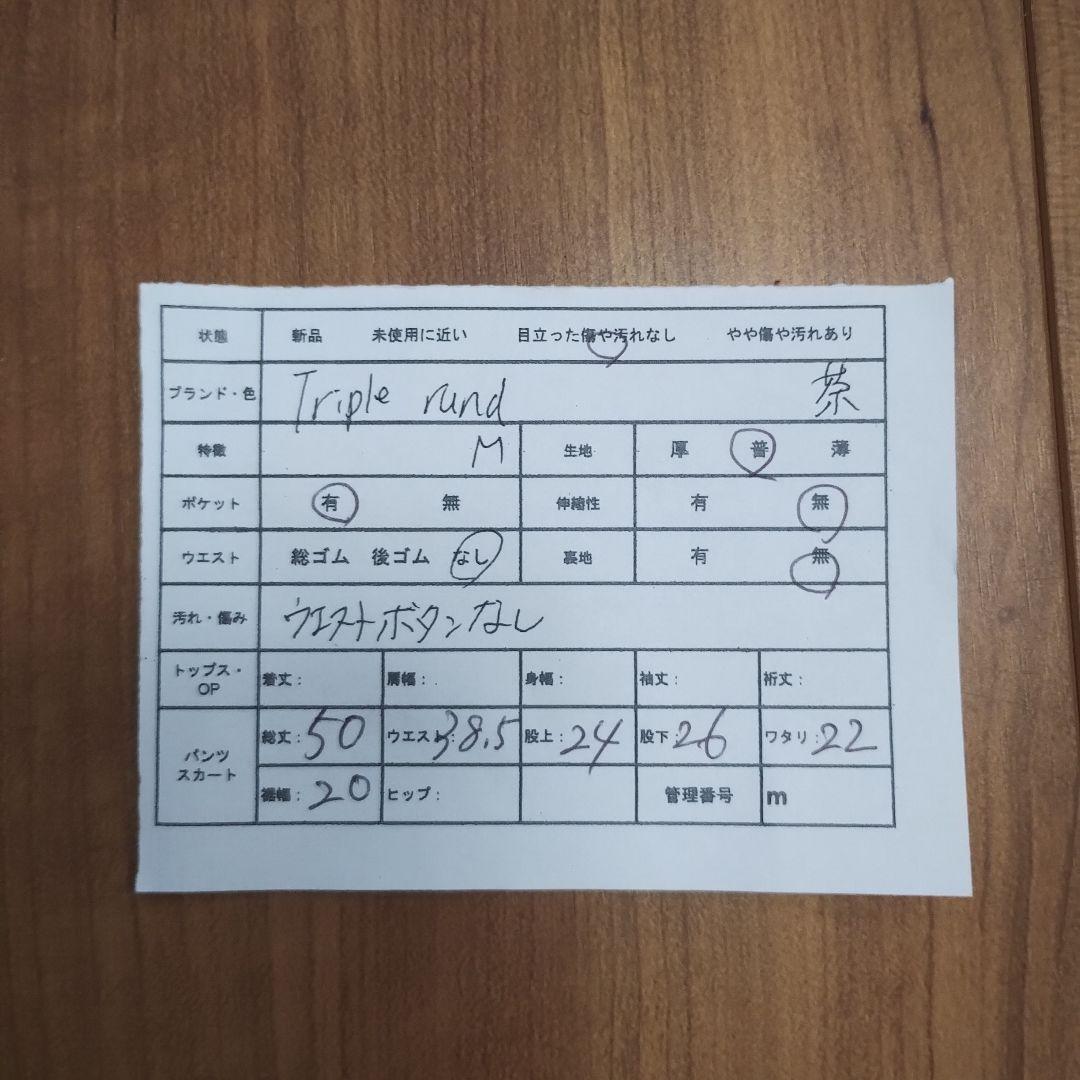 状態 新品 未使用に近い 目立った傷や汚れなし やや傷や汚れあり
ブランド・色 Triple rund 茶
特徴 M 生地 厚 普 薄
ポケット 有 無 伸縮性 有 無
ウエスト 総ゴム 後ゴム なし 裏地 有 無
汚れ・傷み ウエストボタンなし
トップス・OP 着丈: 肩幅: 身幅: 袖丈: 裄丈:
パンツ スカート 総丈:50 ウエスト:38.5 股上:24 股下:26 ワタリ:22
裾幅:20 ヒップ: 管理番号 m